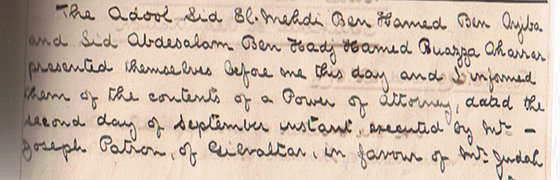 The Adool Sid El-Mehdi Ben Hamed Ben Ajiba
and Sid Abdesalam Ben Hadj Hamed Buazza
presented themselves before me this day and I informed
them of the contents of a Power of attorney, dated the
second day of September instant, executed by Mr –
Joseph Patron, of Gibraltar, in favour of Mr. Judah